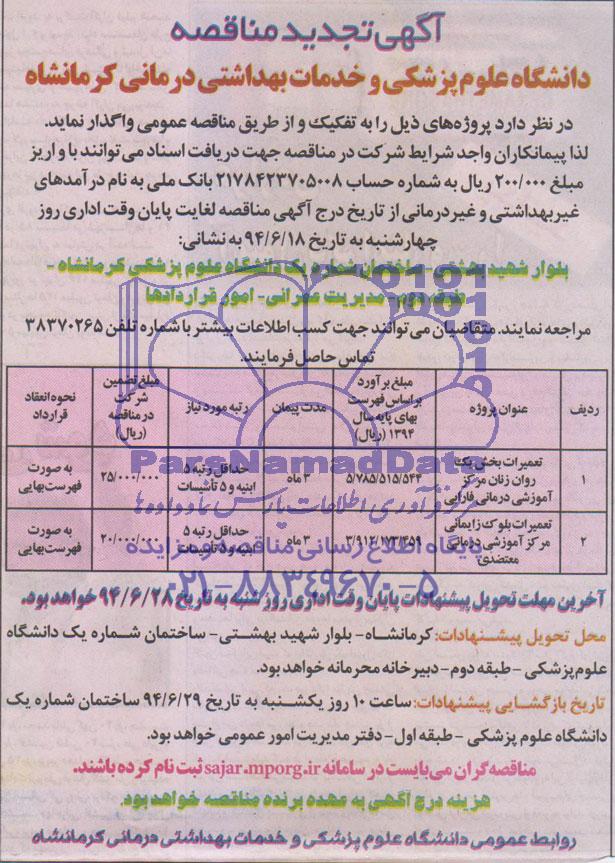 آگهی تجدید مناقصه
دانشگاه علوم پزشکی و خدمات بهداشتی درمانی کرمانشاه
در نظر دارد پروژه‌های ذیل را به تفکیک و از طریق مناقصه عمومی واگذار نماید.
لذا پیمانکاران واجد شرایط شرکت در مناقصه جهت دریافت اسناد می‌توانند با واریز
مبلغ ۲۰۰/۰۰۰ ریال به شماره حساب ۲۱۷۸۴۲۳۷۰۵۰۰۸ بانک ملی به نام درآمدهای
غیربهداشتی و غیردرمانی از تاریخ درج آگهی مناقصه لغایت پایان وقت اداری روز
چهارشنبه به تاریخ ۹۴/۶/۱۸ به نشانی:
بلوار شهید بهشتی - ساختمان شماره یک دانشگاه علوم پزشکی کرمانشاه -
طبقه دوم - مدیریت عمرانی - امور قراردادها
مراجعه نمایند. متقاضیان می‌توانند جهت کسب اطلاعات بیشتر با شماره تلفن ۳۸۳۷۰۲۶۵
تماس حاصل فرمایند.
ردیف | عنوان پروژه | مبلغ برآورد براساس فهرست بهای پایه سال ۱۳۹۴ (ریال) | مدت پیمان | رتبه مورد نیاز | مبلغ تضمین شرکت در مناقصه (ریال) | نحوه انعقاد قرارداد
۱ | تعمیرات بخش یک روان زنان مرکز آموزشی درمانی فارابی | ۵/۷۸۵/۵۱۵/۵۴۴ | ۳ ماه | حداقل رتبه ۵ ابنیه و ۵ تأسیسات | ۲۵/۰۰۰/۰۰۰ | به صورت فهرست‌بهایی
۲ | تعمیرات بلوک زایمانی مرکز آموزشی درمانی معتضدی | ۳/۹۱۲/۱۷۳/۳۵۹ | ۳ ماه | حداقل رتبه ۵ ابنیه و ۵ تأسیسات | ۲۰/۰۰۰/۰۰۰ | به صورت فهرست‌بهایی
ParsNamadData
مرکز فرآوری اطلاعات پارس نماد داده‌ها
پایگاه اطلاع رسانی مناقصه و مزایده
۰۲۱-۸۸۳۴۹۶۷۰-۵
آخرین مهلت تحویل پیشنهادات پایان وقت اداری روز شنبه به تاریخ ۹۴/۶/۲۸ خواهد بود.
محل تحویل پیشنهادات: کرمانشاه - بلوار شهید بهشتی - ساختمان شماره یک دانشگاه
علوم پزشکی - طبقه دوم - دبیرخانه محرمانه خواهد بود.
تاریخ بازگشایی پیشنهادات: ساعت ۱۰ روز یکشنبه به تاریخ ۹۴/۶/۲۹ ساختمان شماره یک
دانشگاه علوم پزشکی - طبقه اول - دفتر مدیریت امور عمومی خواهد بود.
مناقصه‌گران می‌بایست در سامانه sajar.mporg.ir ثبت نام کرده باشند.
هزینه درج آگهی به عهده برنده مناقصه خواهد بود.
روابط عمومی دانشگاه علوم پزشکی و خدمات بهداشتی درمانی کرمانشاه